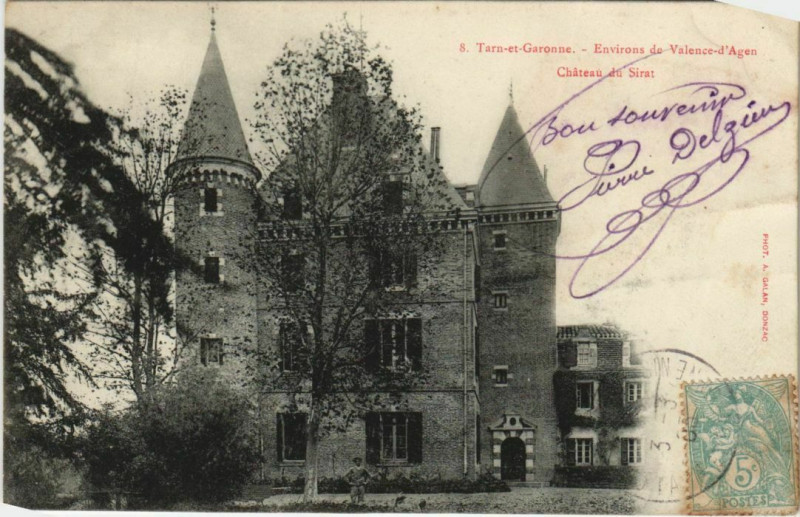 8. Tarn-et-Garonne. - Environs de Valence-d'Agen
Château du Sirat
Bon souvenir
Pierre Delzieu
PHOT. A. GALAN, DONZAC
3 -3
5c
POSTES